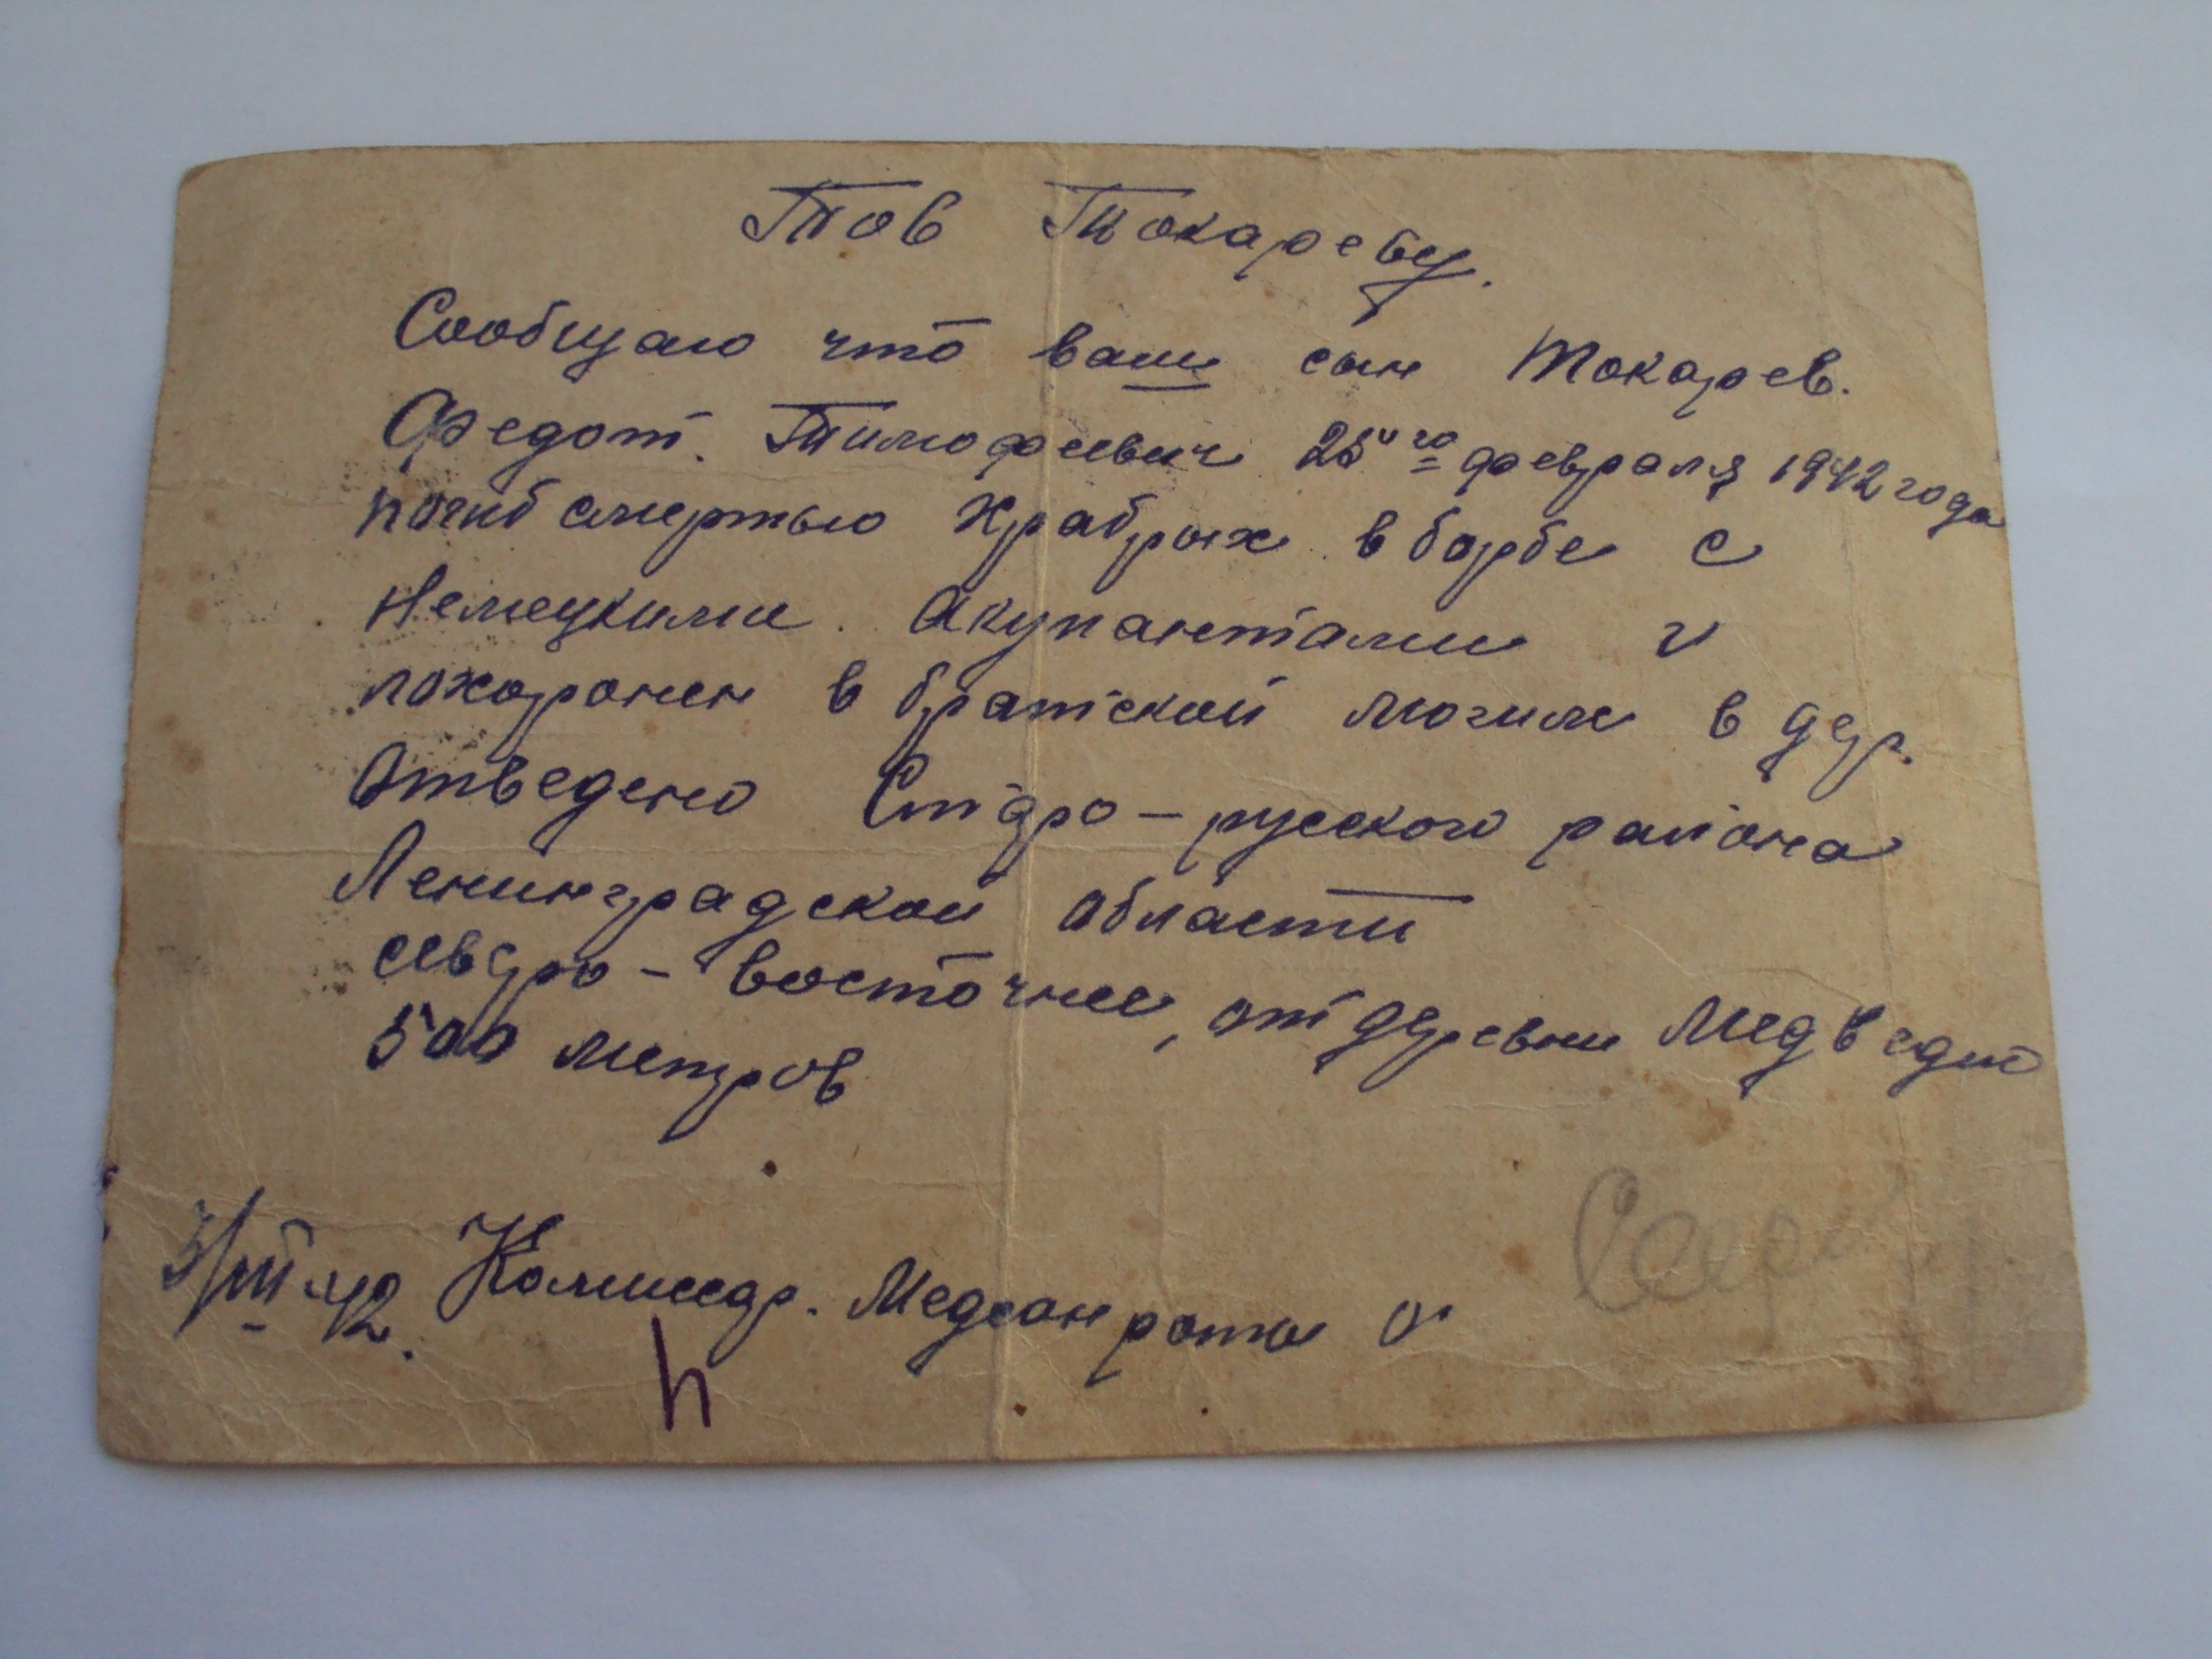 Тов Токареву.
Сообщаю что ваш сын Токарев.
Федот. Тимофеевич 25го февраля 1942 года
погиб смертью храбрых в борбе с
немецкими. акупантами и
похоронен в братской могиле в дер.
Отведено Старо-русского района
Ленинградской области
северо-восточнее, от деревни Медведно
500 метров
3/III-42. Комиссар. Медсан роты